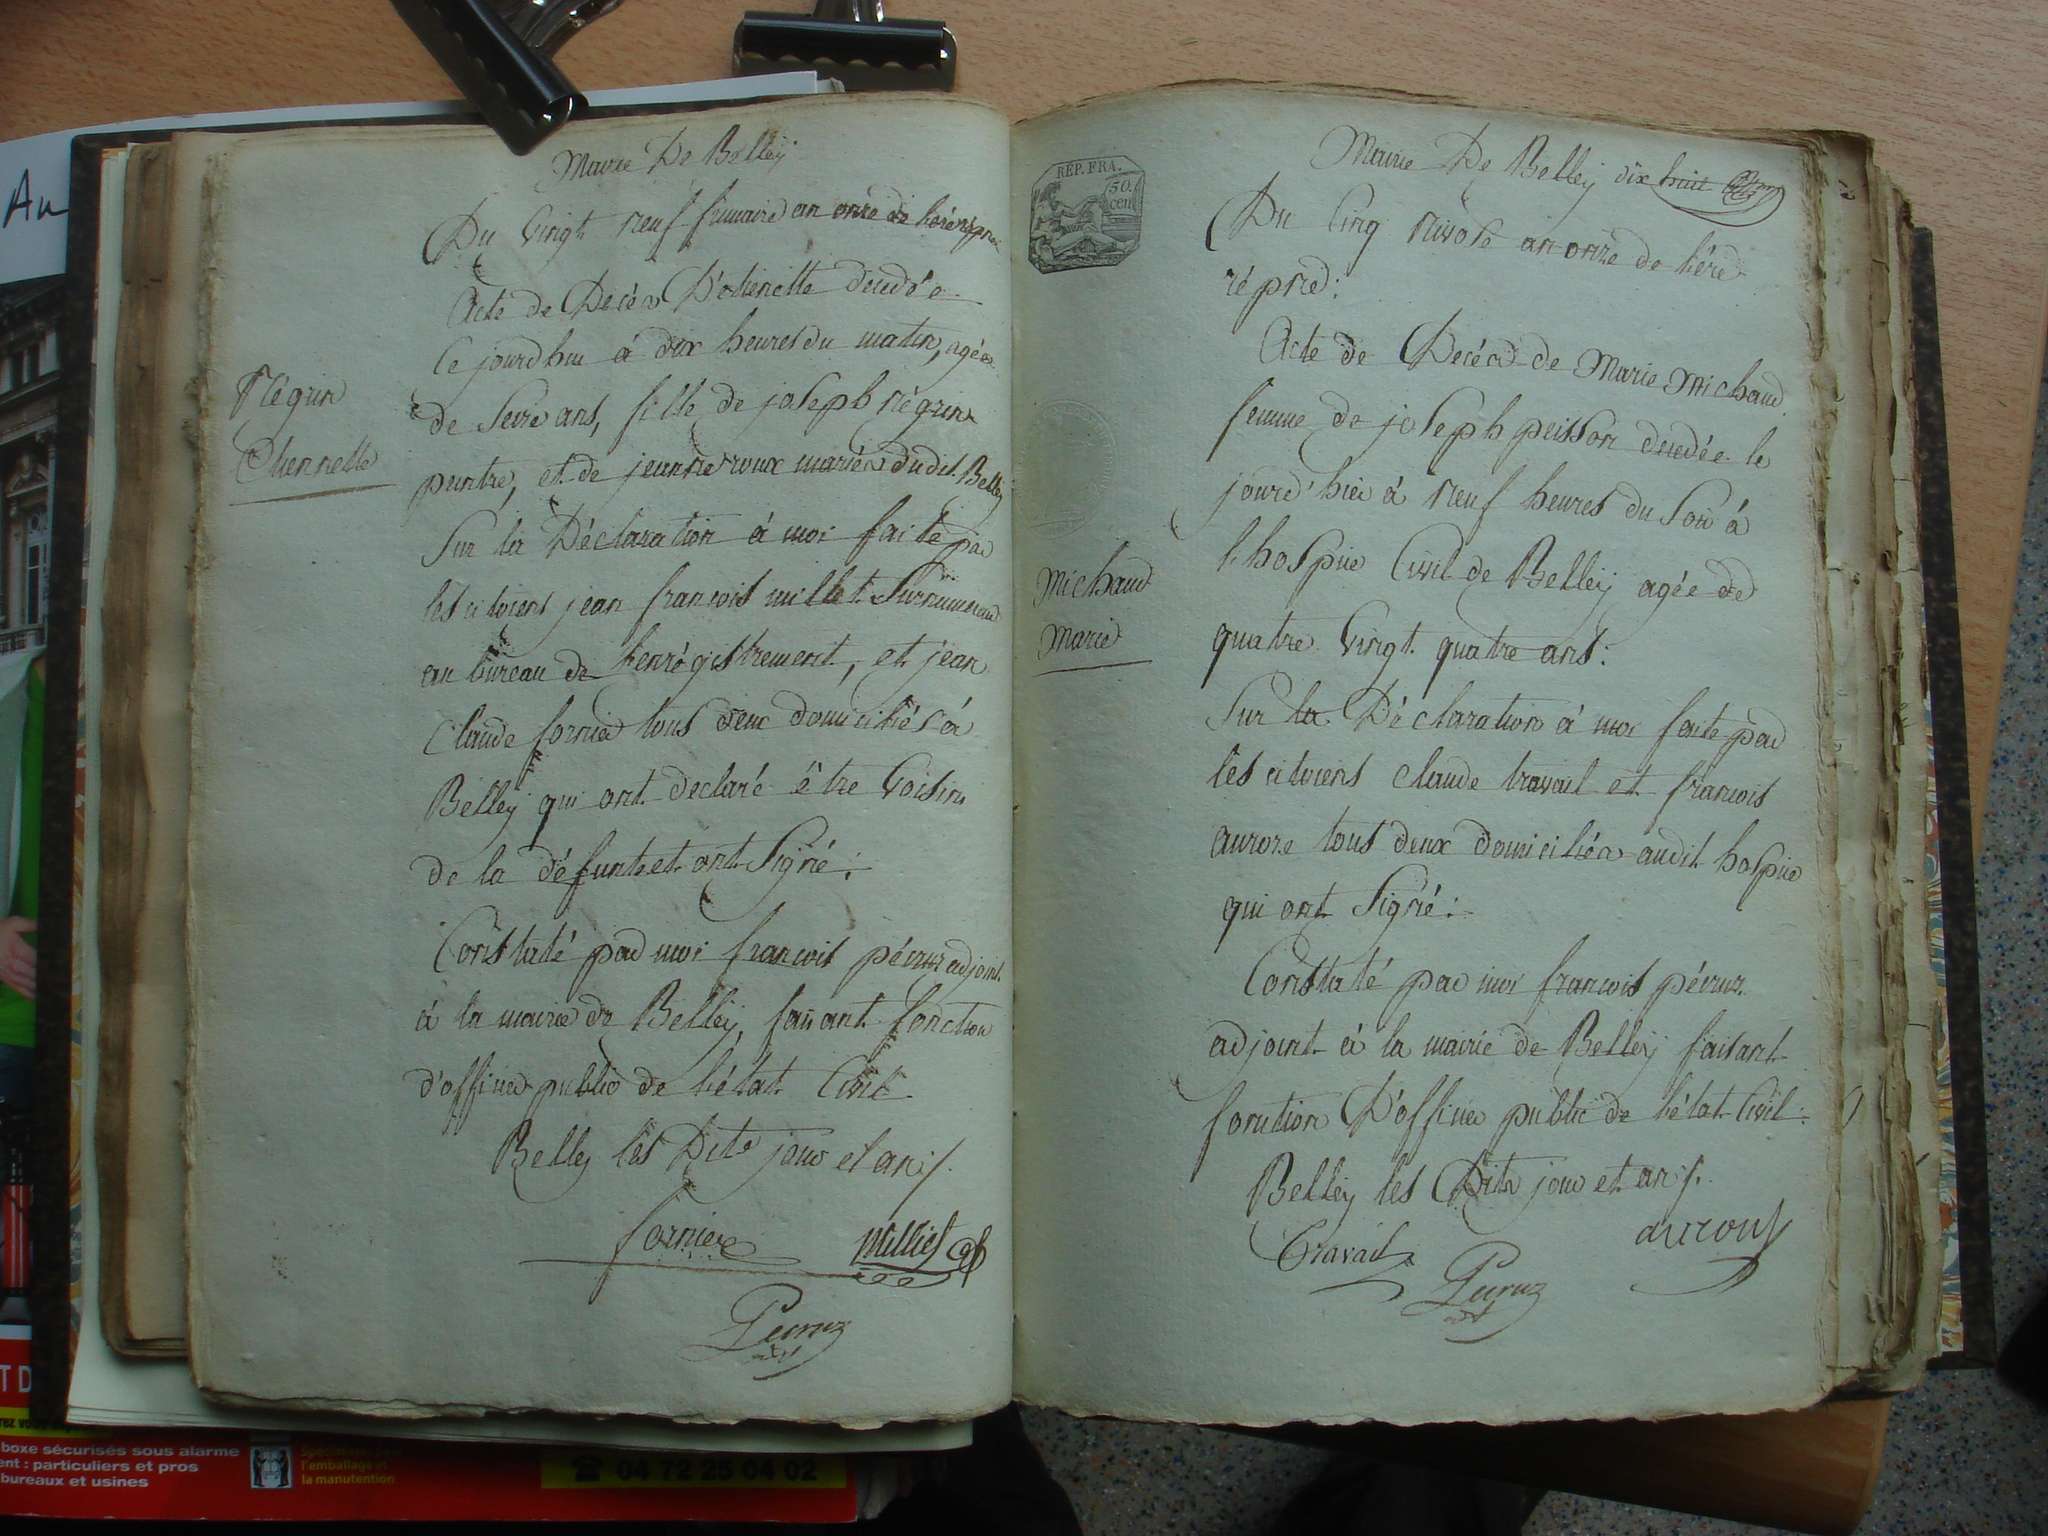 Au
Mairie De Belley
Du Vingt neuf frimaire an onze de
Acte de Décès D'etiennette decedée
Ce jourdhui à dix heures du matin, agée
de Seize ans, fille de joseph Négrin
peintre, et de jeanne roux mariés dudit Belley
Négrin
Etiennette
Sur la Déclaration à moi faite par
les citoiens jean françois millet Surnumeraire
au bureau de lenrégistrement, et jean
Claude fornier tous deux domiciliés à
Belley qui ont declaré être Voisins
de la défunte et ont Signé :
Constaté par moi françois pécruz adjoint
à la mairie de Belley, faisant fonction
d'officier public de l'état Civil
Belley les Dits jour et an ./.
fornier milliet
Pecruz
adjt
Mairie De Belley dix huit
RÉP. FRA.
50
cen.
Du Cinq Nivose an onze de l'ére
répne :
Acte de Décès de Marie Michaud
femme de joseph peisson decedée le
jourd'hier à neuf heures du Soir à
lhospice Civil de Belley agée de
quatre Vingt quatre ans :
Michaud
Marie
Sur la Déclaration à moi faite par
les citoiens Claude travail et françois
aurore tous deux domiciliés audit hospice
qui ont Signé :
Constaté par moi françois pécruz
adjoint à la mairie de Belley faisant
fonction D'officier public de l'état Civil :
Belley les Dits jour et an ./.
Travail
Pecruz
adjt
boxe sécurisés sous alarme
ent : particuliers et pros
bureaux et usines
l'emballage et
la manutention
04 72 25 04 02